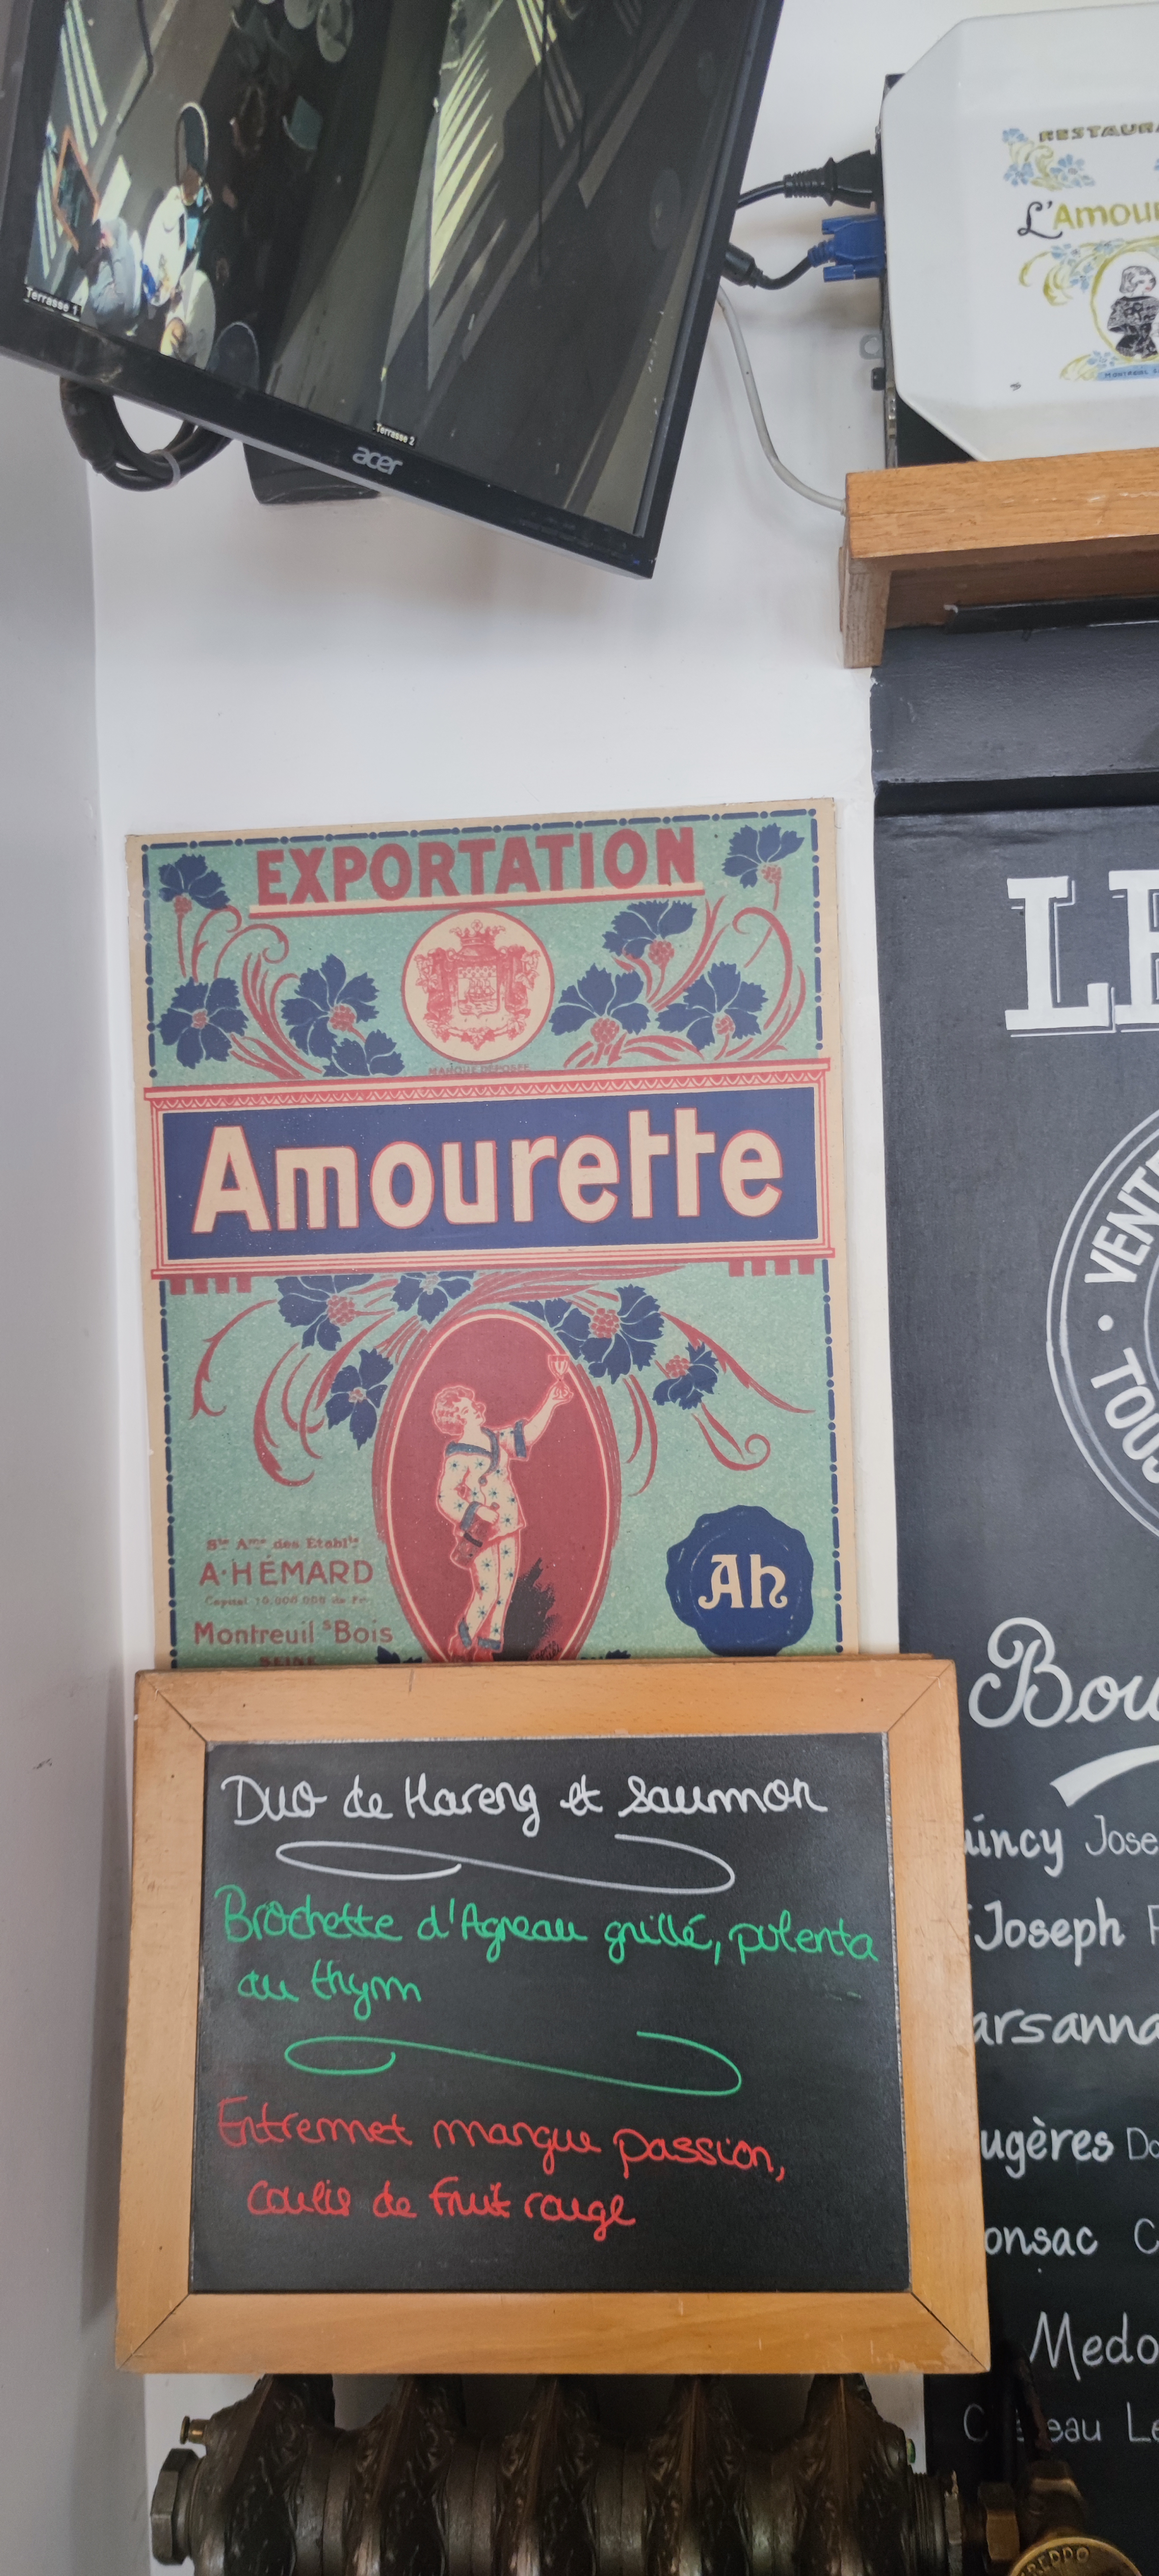 Terrasse 1
Terrasse 2
acer
RESTAURA
L'Amour
EXPORTATION
MARQUE DEPOSEE
Amourette
Sté Ame des Etablts
A·HÉMARD
Capital 10.000.000 de Frs
Montreuil s Bois
SEINE
Ah
Duo de Hareng et Saumon
Brochette d'Agneau grillé, polenta
au thym
Entremet mangue passion,
coulis de fruit rouge
LE
· VENTE
TOUS
Bou
uincy Jose
Joseph
arsanna
ugères Do
onsac C
Medo
eau Le